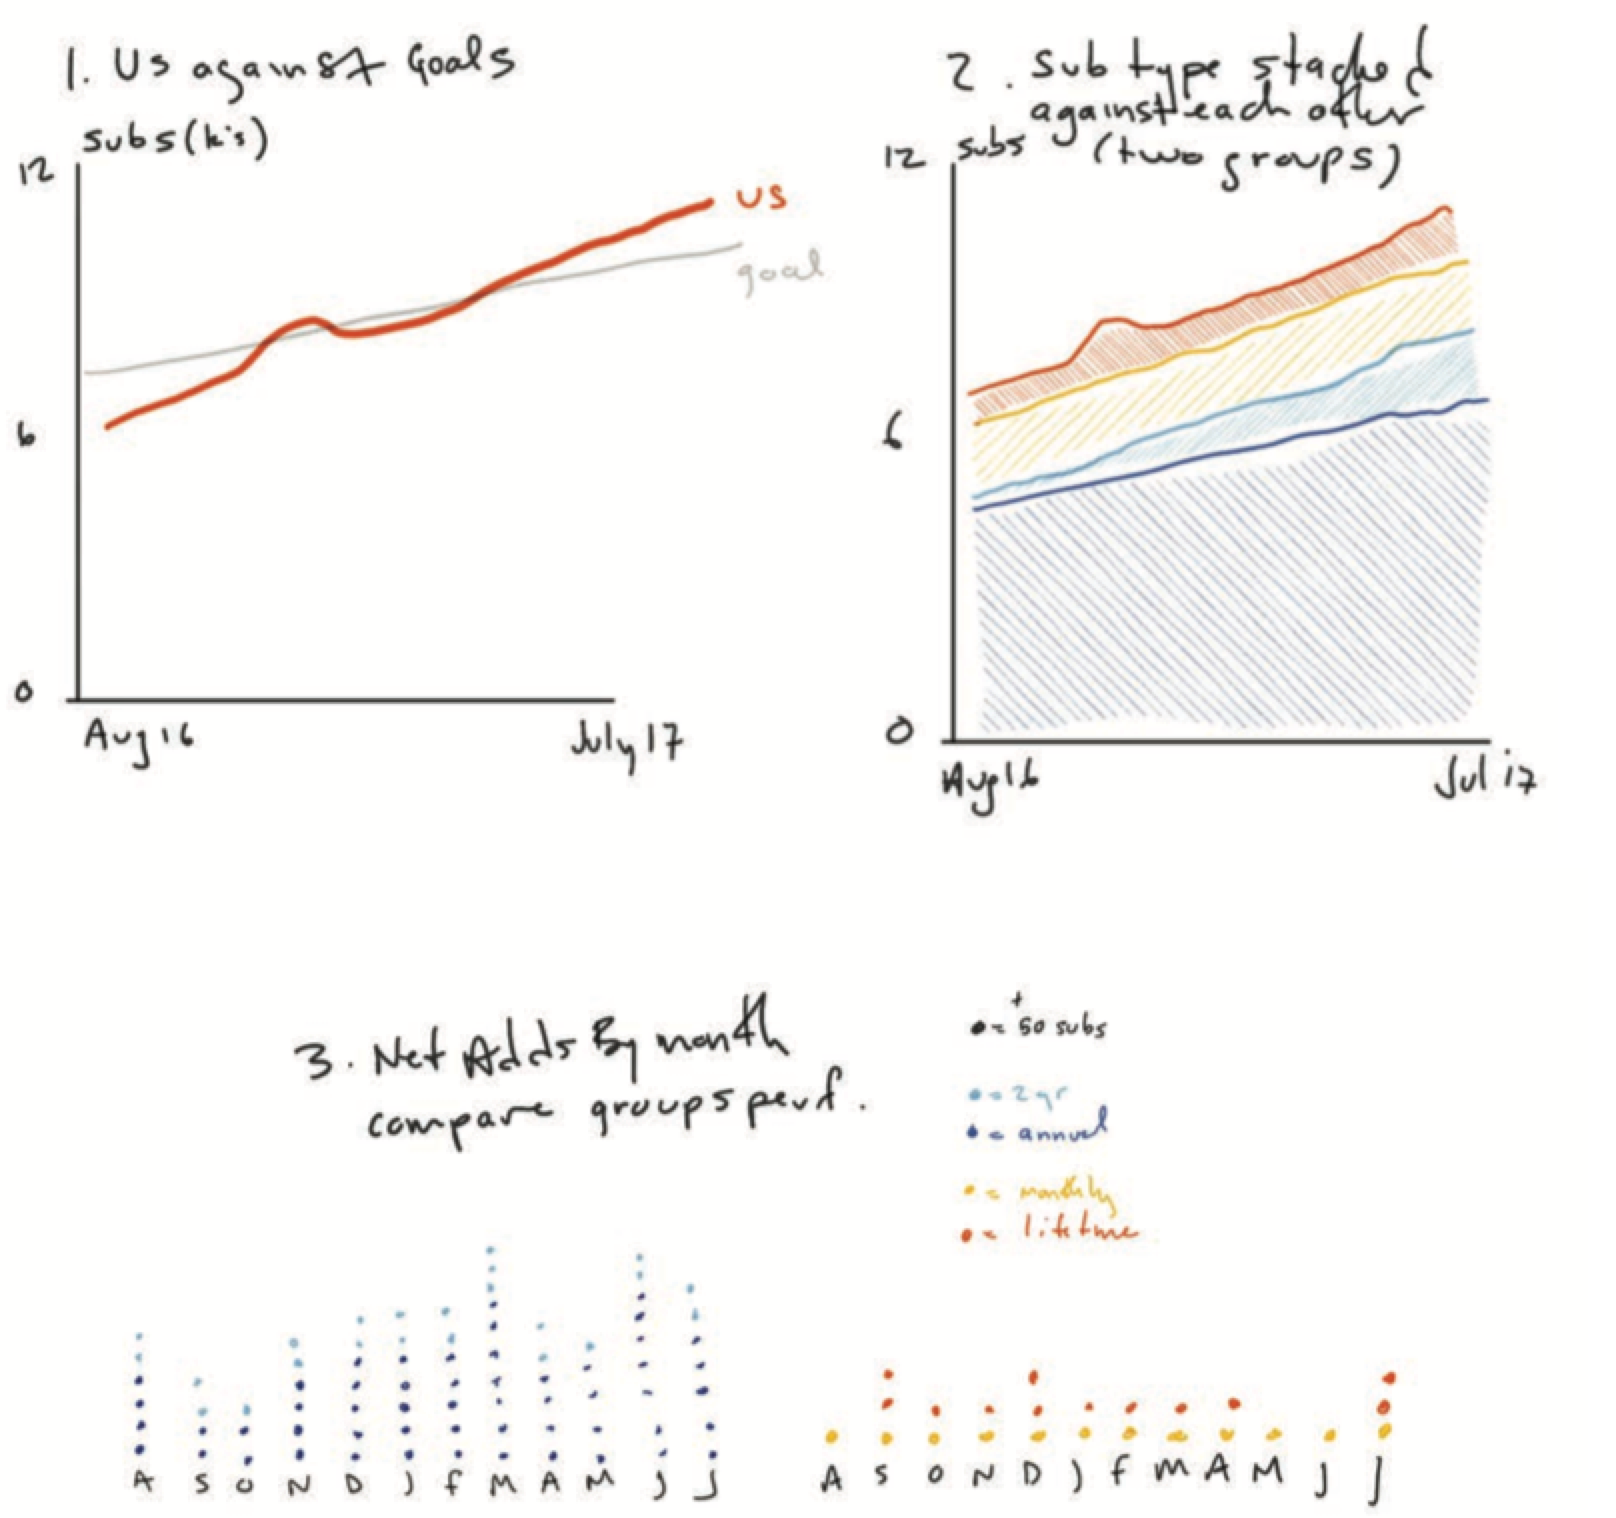 1. Us against Goals
subs (k's)
12
6
0
us
goal
Aug 16
July 17
2. Sub type stacked
against each other
(two groups)
12
subs
6
0
Aug 16
Jul 17
3. Net Adds By month
compare groups perf.
• = +50 subs
• = 2yr
• = annual
• = monthly
• = lifetime
A S O N D J F M A M J J
A S O N D J F M A M J J